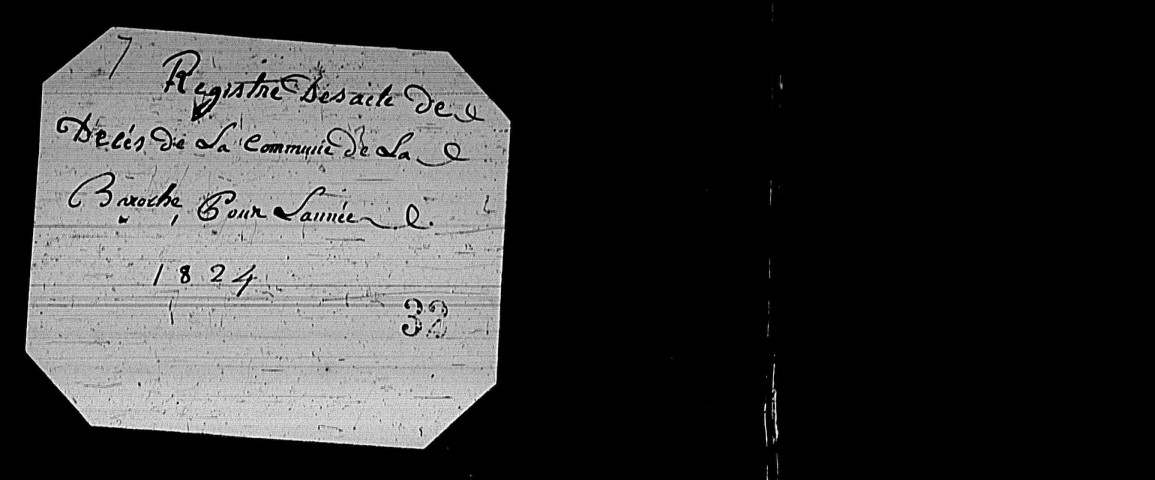 7
Registre Des acte de
Decés de La Commune de La
Baroche, Pour Lannée
1824
32